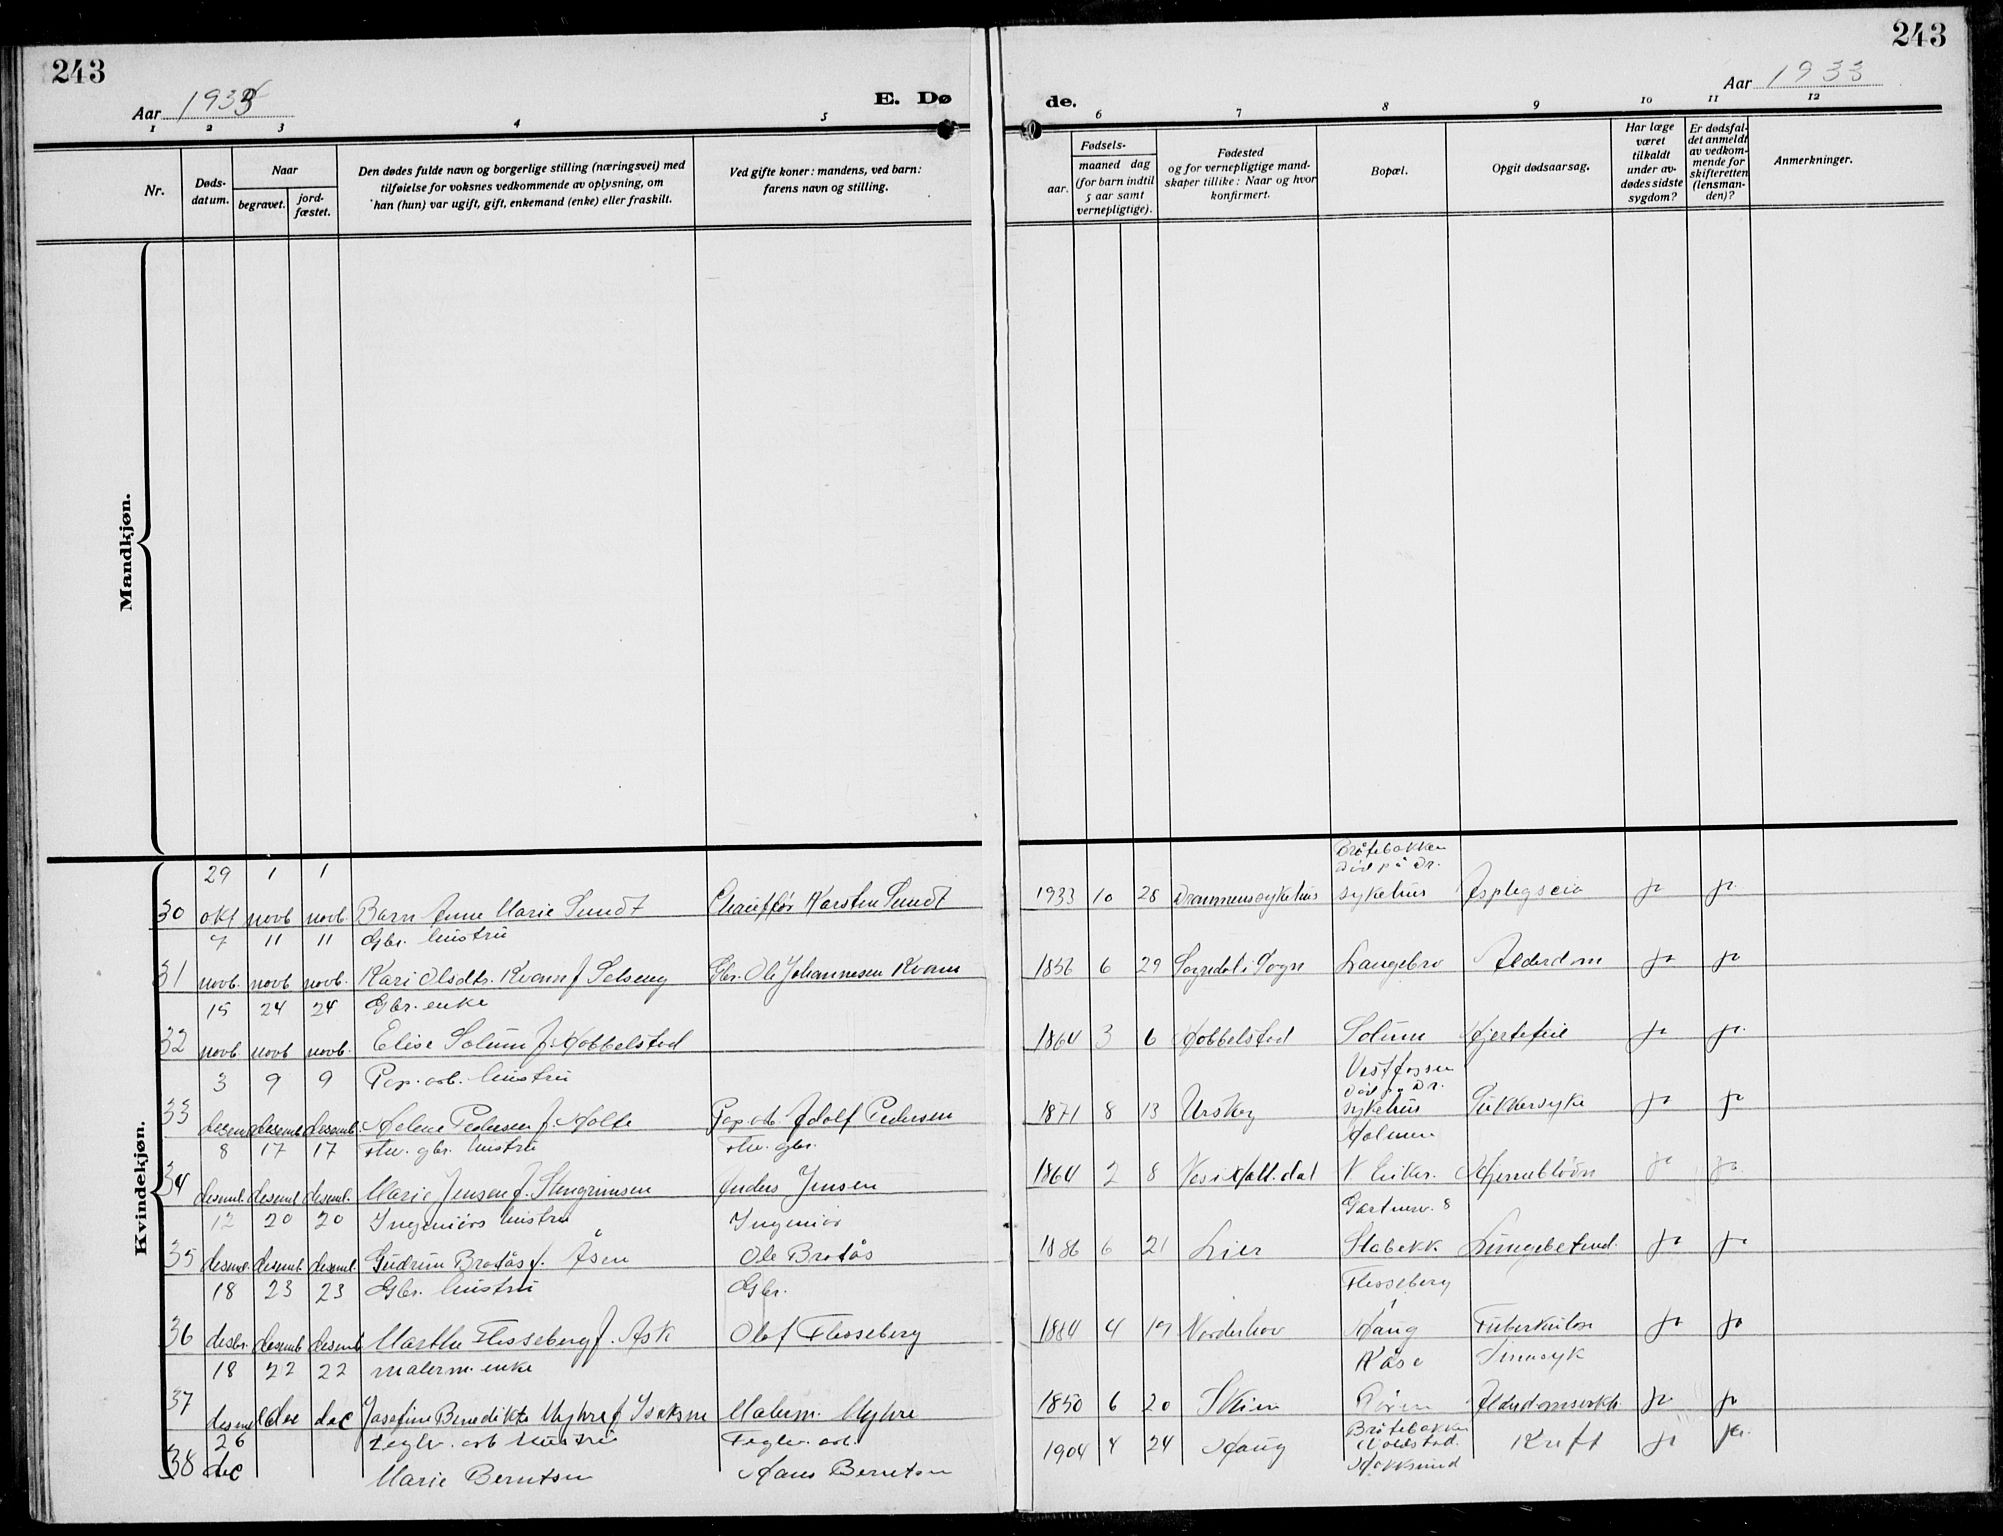 243
243
Aar 1933
E. Dø
de.
Aar 1933
1 2 3 4 5 6 7 8 9 10 11 12
Nr.
Døds-
datum.
Naar
begravet.
jord-
fæstet.
Den dødes fulde navn og borgerlige stilling (næringsvei) med
tilføielse for voksnes vedkommende av oplysning, om
han (hun) var ugift, gift, enkemand (enke) eller fraskilt.
Ved gifte koner: mandens, ved barn:
farens navn og stilling.
Fødsels-
aar.
maaned dag
(for barn indtil
5 aar samt
vernepligtige).
Fødested
og for vernepligtige mand-
skaper tillike: Naar og hvor
konfirmert.
Bopæl.
Opgit dødsaarsag.
Har læge
været
tilkaldt
under av-
dødes sidste
sygdom?
Er dødsfal-
det anmeldt
av vedkom-
mende for
skifteretten
(lensman-
den)?
Anmerkninger.
Mandkjøn.
Kvindekjøn.
29 1 1 Brøtebakken
død på Dr.
30 okt novb novb Barn Anne Marie Sundt Karsten Sundt 1933 10 28 Drammens sykehus sykehus ja ja
7 11 11 Gbr. hustru
31 novb. novb novb. Kari Olsdtr. Kvam f Selseng Gbr. Ole Johannesen Kvam 1856 6 29 Sogndal i Sogn Langebro Alderdom ja ja
15 24 24 Gbr. enke
32 novb. novb novb. Elise Solum f. Hobbelstad 1864 3 6 Hobbelstad Solum Hjertefeil ja ja
3 9 9 Pap. arb. hustru Vestfossen
død på Dr.
33 desem desemb desemb. Helene Pedersen f. Holte Pap. arb. Adolf Pedersen 1871 8 13 Urskog sykehus Sukkersyke ja ja
8 17 17 fhv. gbr. hustru fhv. gbr. Holmen
34 desemb. desemb desemb. Marie Jensen f. Stengrimsen Anders Jensen 1864 2 8 Nes i Hall.dal N. Eiker. ja ja
12 20 20 Ingeniørs hustru Ingeniør Gartnerv. 8
35 desemb desemb desemb. Gudrun Brotås f. Åsen Ole Brotås 1886 6 21 Lier Stabekk Lungebetend. ja ja
18 23 23 Gbr. hustru Gbr. Flesseberg
36 desbr. desemb desemb Marthe Flesseberg f. Ask Olof Flesseberg 1884 4 19 Norderhov Haug Tuberkulos ja ja
18 22 22 malerm. enke Sinnsyk
37 desemb dec dec Josefine Benedikte Myhre f Isaksen Malerm. Myhre 1850 6 20 Skien ja ja
26 teglv. arb hustru Teglv. arb. Brøtebakken
38 dec Marie Berntsen Hans Berntsen 1904 4 24 Haug Hokksund Kreft ja ja